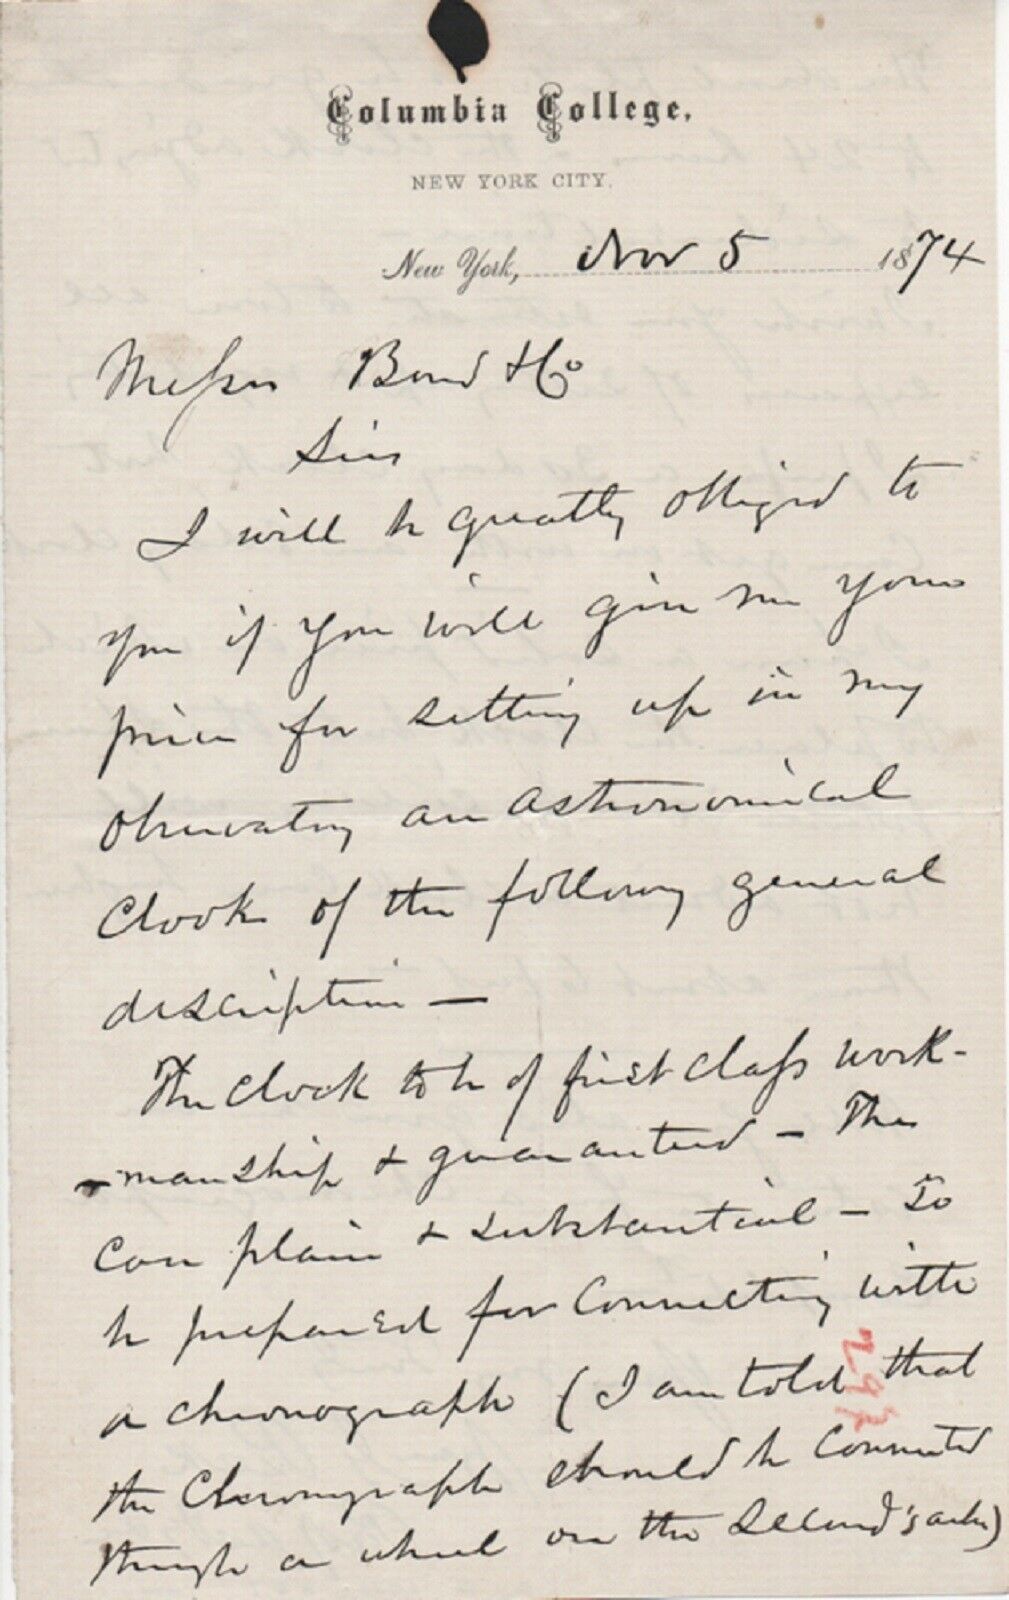 Columbia College,
NEW YORK CITY.
New York, Nov 5 1874
Messrs Bond & Co
Sirs
I will be greatly obliged to
you if you will give me your
price for setting up in my
Observatory an astronomical
Clock of the following general
description —
The clock to be of first class work-
-manship & guaranteed — The
case plain & substantial — To
be prepared for connecting with
a chronograph (I am told that
the Chronograph should be connected
through a wheel on the second's arbor)